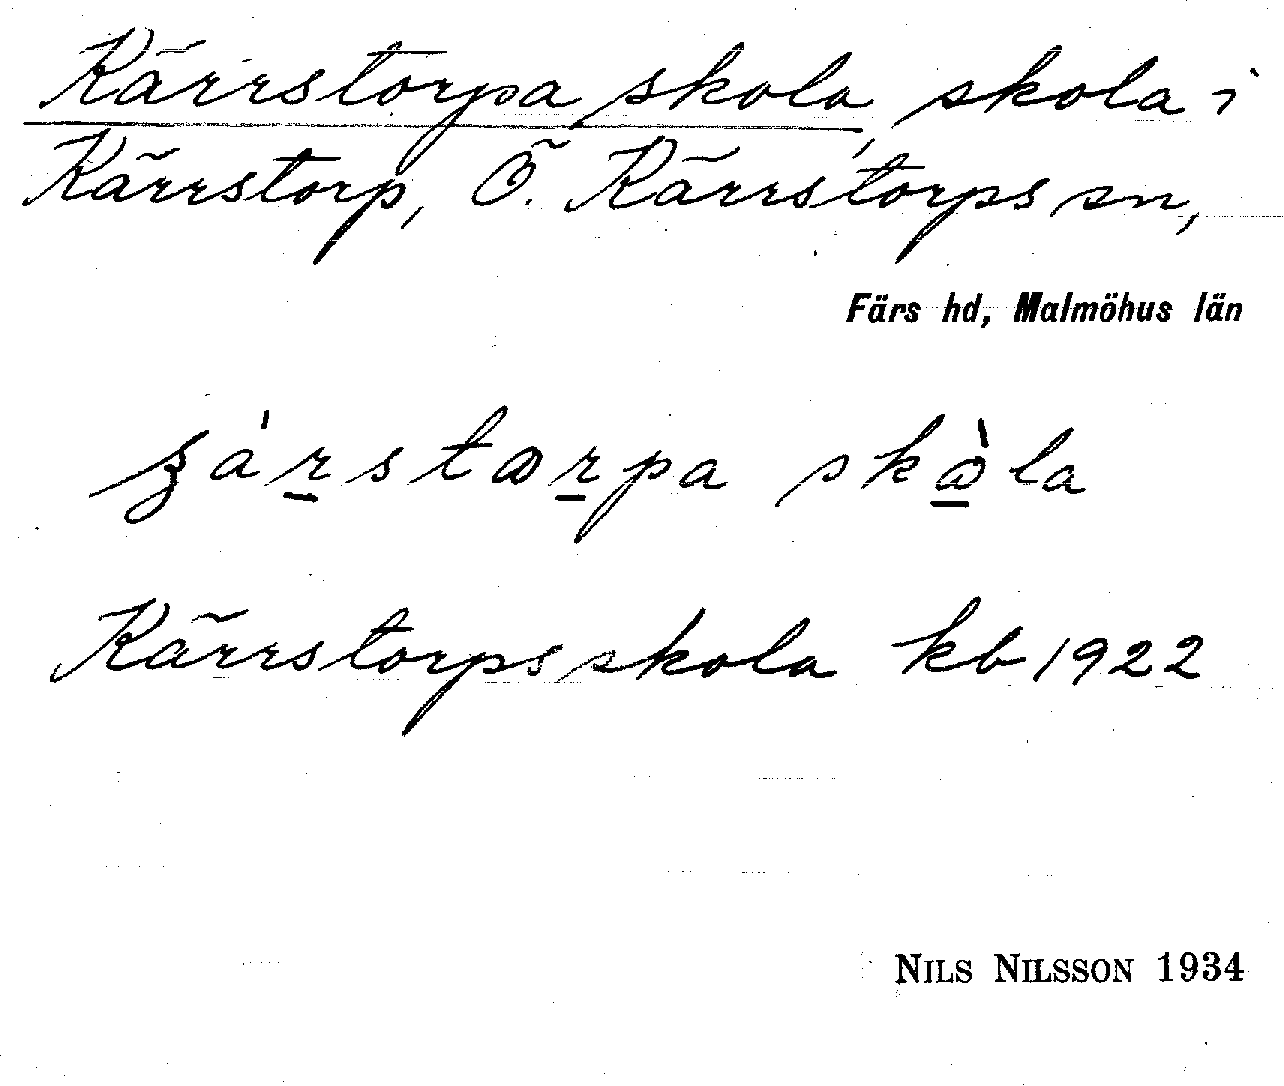 Kärrstorpa skola, skola i
Kärrstorp, Ö. Kärrstorps sn,
Färs hd, Malmöhus län
skola
Kärrstorps skola kb 1922
NILS NILSSON 1934